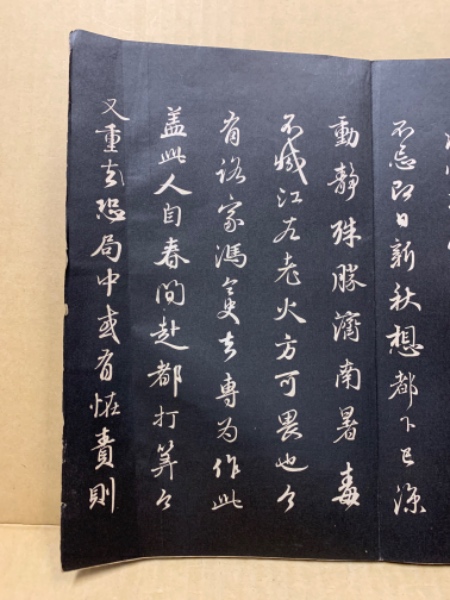 不忘即日新秋想都下已涼
動靜殊勝濟南暑毒
不減江左老火方可畏也今
有路家馮叟去專為作此
盖此人自春間赴都打筭今
又重去恐局中或有恠責則